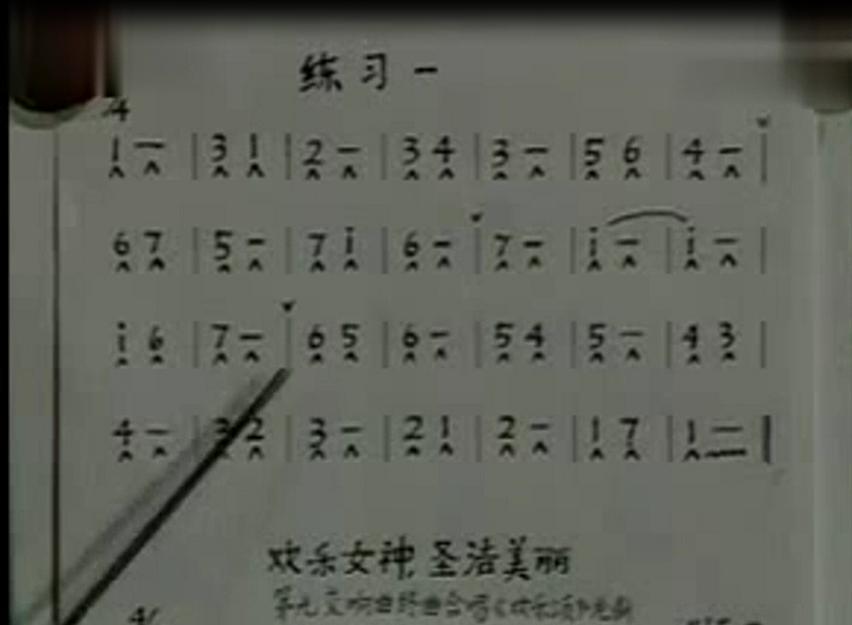 练习一
/4
1 – | 3 1 | 2 – | 3 4 | 3 – | 5 6 | 4 – |
6 7 | 5 – | 7 i | 6 – | 7 – | i – | i – |
i 6 | 7 – | 6 5 | 6 – | 5 4 | 5 – | 4 3 |
4 – | 3 2 | 3 – | 2 1 | 2 – | 1 7 | 1 – |
欢乐女神,圣洁美丽
第九交响曲终曲合唱《欢乐颂》
4/